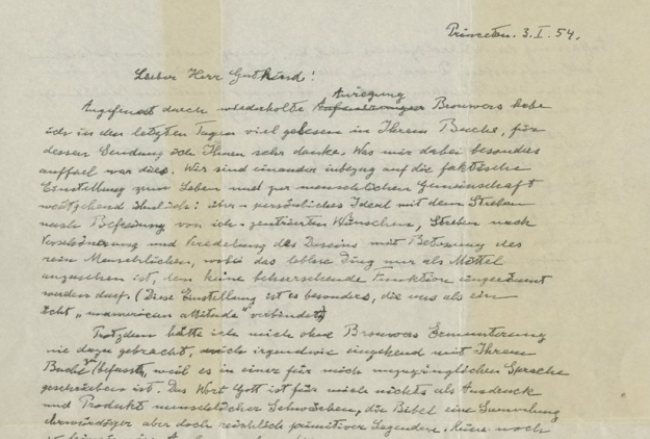 Princeton. 3. I. 54.
Lieber Herr Gutkind!
Anregung
Angefeuert durch wiederholte Brouwers habe
ich in den letzten Tagen viel gelesen in Ihrem Buche, für
dessen Sendung ich Ihnen sehr danke. Was mir dabei besonders
auffiel war dies. Wir sind einander inbezug auf die faktische
Einstellung zum Leben und zur menschlichen Gemeinschaft
weitgehend ähnlich: über-persönliches Ideal mit dem Streben
nach Befreiung von ich-zentrierten Wünschen, Streben nach
Verschönerung und Veredelung des Daseins mit Betonung des
rein Menschlichen, wobei das leblose Ding nur als Mittel
anzusehen ist, dem keine beherrschende Funktion eingeräumt
werden darf. (Diese Einstellung ist es besonders, die uns als ein
echt „unamerican attitude" verbindet)
Trotzdem hätte ich mich ohne Brouwers Ermunterung
nie dazu gebracht, mich irgendwie eingehend mit Ihrem
Buche zu befassen, weil es in einer für mich unzugänglichen Sprache
geschrieben ist. Das Wort Gott ist für mich nichts als Ausdruck
und Produkt menschlicher Schwächen, die Bibel eine Sammlung
ehrwürdiger aber doch reichlich primitiver Legenden. Keine noch